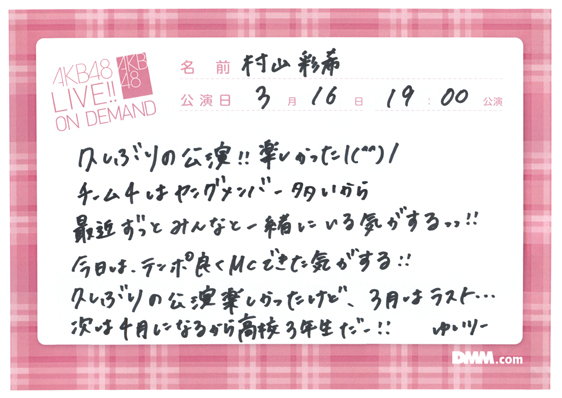 AKB48
LIVE!!
ON DEMAND
AKB
48
名前 村山彩希
公演日 3月16日 19:00公演
久しぶりの公演!!楽しかった\(^^)/
チーム4はヤングメンバー多いから
最近ずっとみんなと一緒にいる気がするっっ!!
今日は、テンポ良くMCできた気がする!!
久しぶりの公演楽しかったけど、3月はラスト…
次は4月になるから高校3年生だー!! ゆいりー
DMM.com